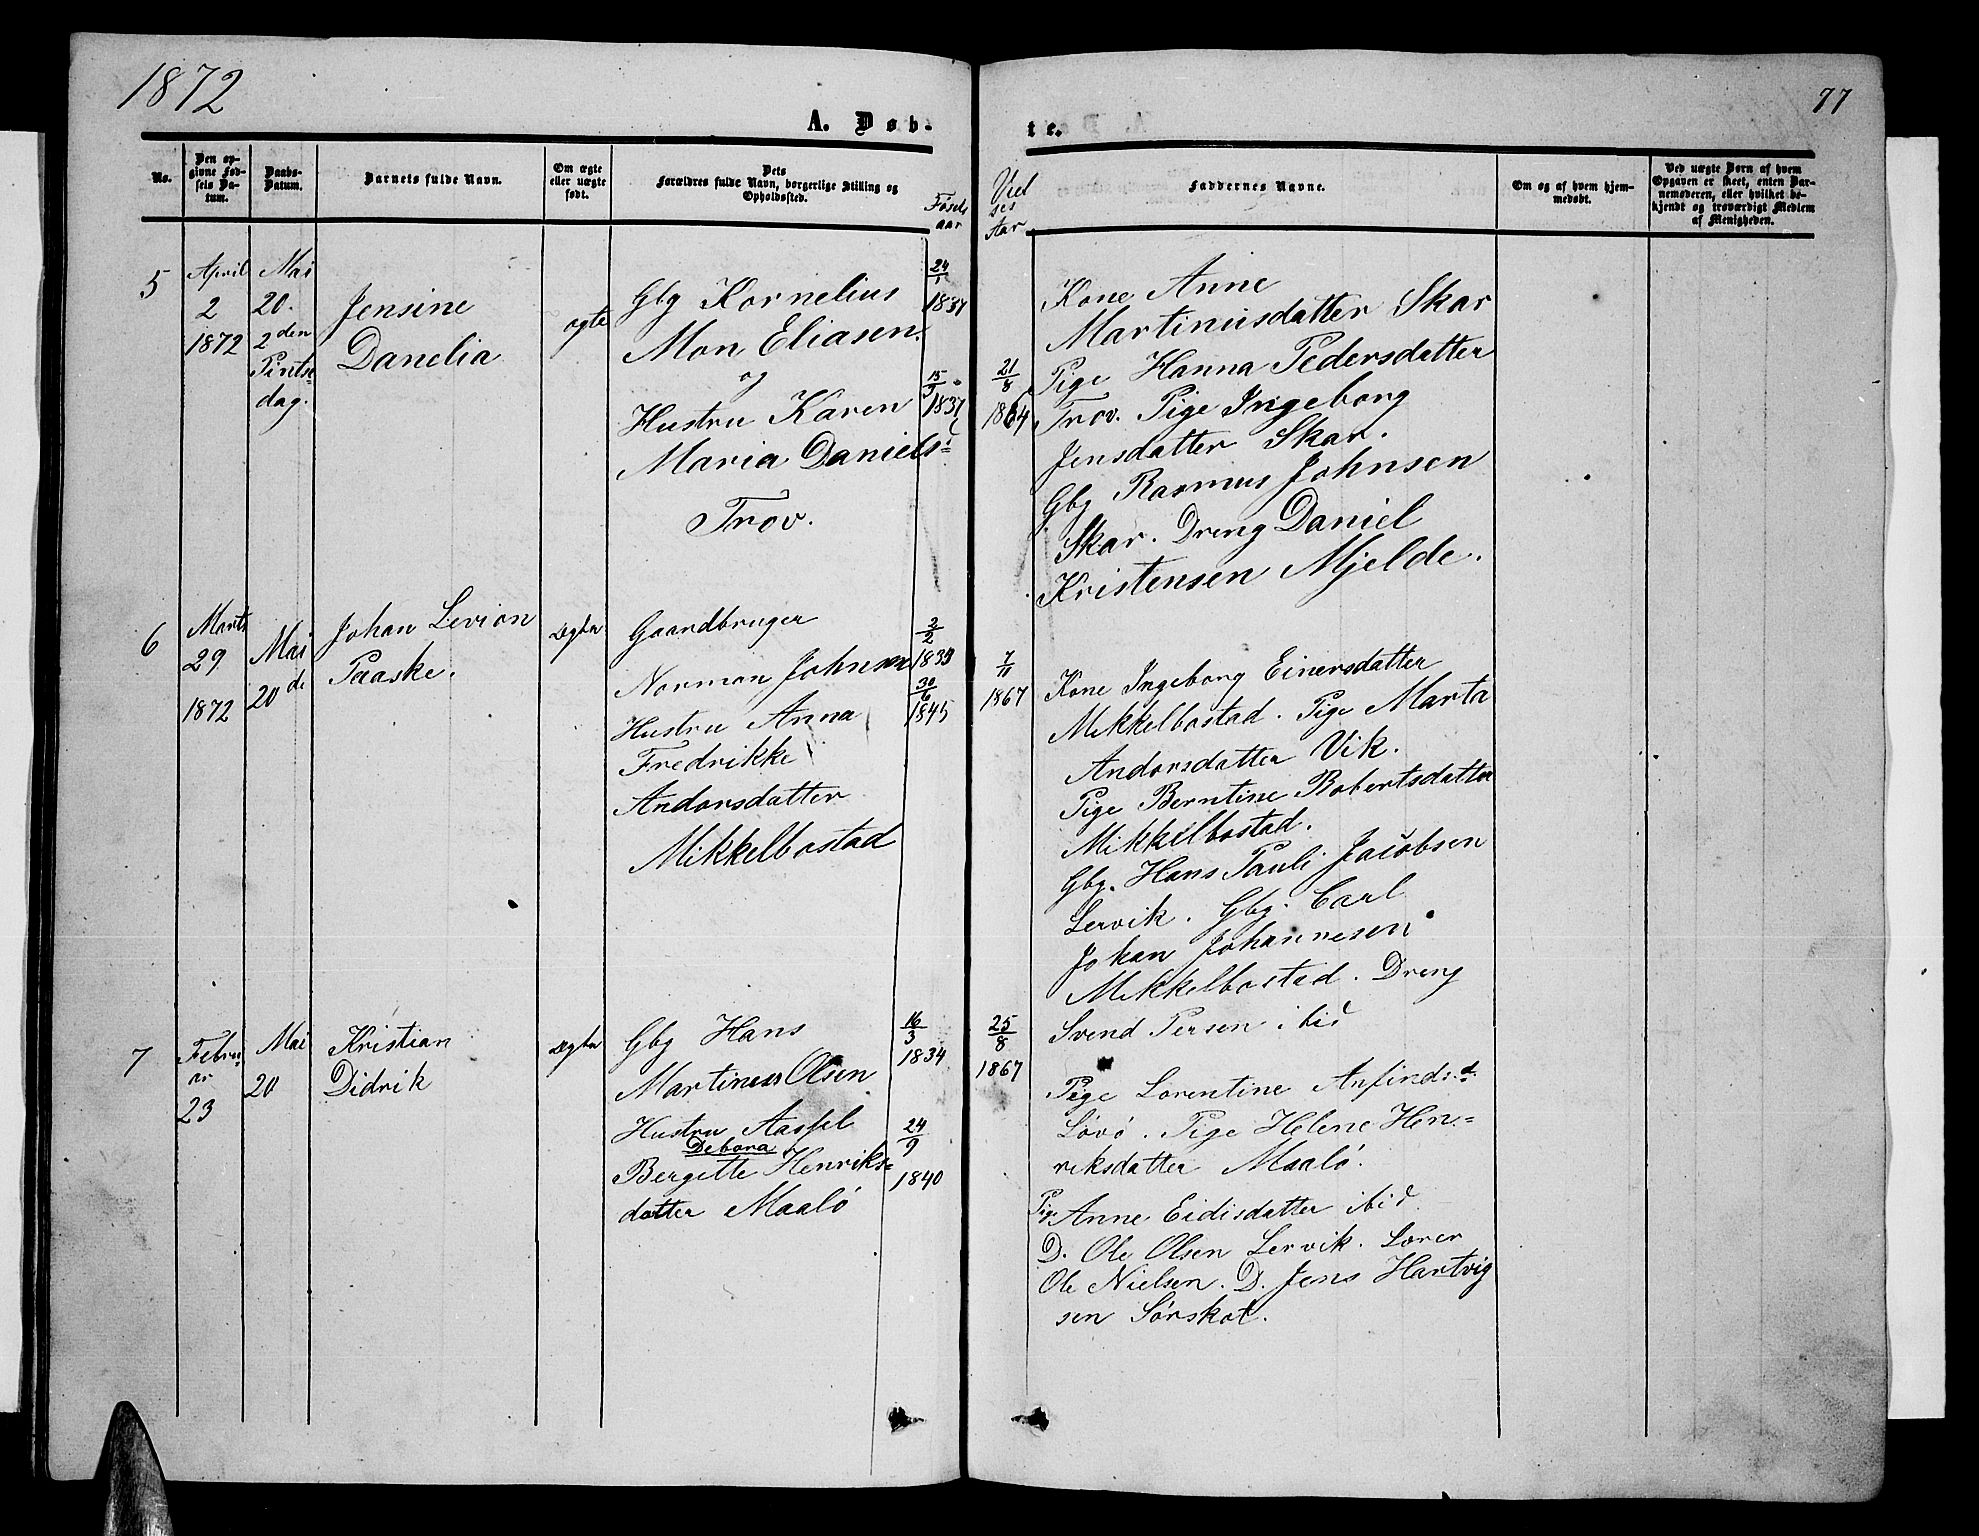 1872
77
A. Døb-
te.
No.
Den op-
givne Fød-
sels Da-
tum.
Daabs-
Datum.
Barnets fulde Navn.
Om ægte
eller uægte
født.
Dets
Forældres fulde Navn, borgerlige Stilling og
Opholdssted.
Fødsels
aar
Viel
ses
Aar
Faddernes Navne.
Om og af hvem hjem-
medøbt.
Ved uægte Børn af hvem
Opgaven er skeet, enten Bar-
nemoderen, eller hvilket be-
kjendt og troværdigt Medlem
af Menigheden.
5
April
2
1872
Mai
20.
2den
Pintse-
dag.
Jensine
Danelia
ægte
Gbg Kornelius
Mon Eliasen.
og
Hustru Karen
Maria Daniels=
Trov.
24/1
1837
15/9
1837
21/8
1864
Kone Anne
Martinusdatter Skar
Pige Hanna Pedersdatter
Trov. Pige Ingeborg
Jensdatter Skar.
Gbg Rasmus Johnsen
Skar. Dreng Daniel
Kristensen Mjelde.
6
Marts
29
1872
Mai
20de
Johan Levion
Paaske.
Ægte
Gaardbruger
Norman Johnsen
Hustru Anna
Fredrikke
Andorsdatter
Mikkelbostad
2/2
1839
30/6
1845
7/11
1867
Kone Ingeborg Einersdatter
Mikkelbostad. Pige Marta
Andorsdatter Vik.
Pige Berntine Robertsdatter
Mikkelbostad.
Gbg. Hans Pauli Jacobsen
Lervik. Gbg. Carl
Johan Johannesen
Mikkelbostad. Dreng
Svend Persen ibid
7
Febru-
ar
23
Mai
20
Kristian
Didrik
Ægte
Gbg Hans
Martinus Olsen
Hustru
Debora
Bergitte Henriks=
datter Maalö
16/3
1834
24/9
1840
25/8
1867
Pige Lorentine Anfinds.d.
Lövö. Pige Helene Hen=
riksdatter Maalö.
Pige Anne Eidisdatter ibid.
D. Ole Olsen Lervik. Lærer
Ole Nielsen. D. Jens Hartvig
sen Sörskot.